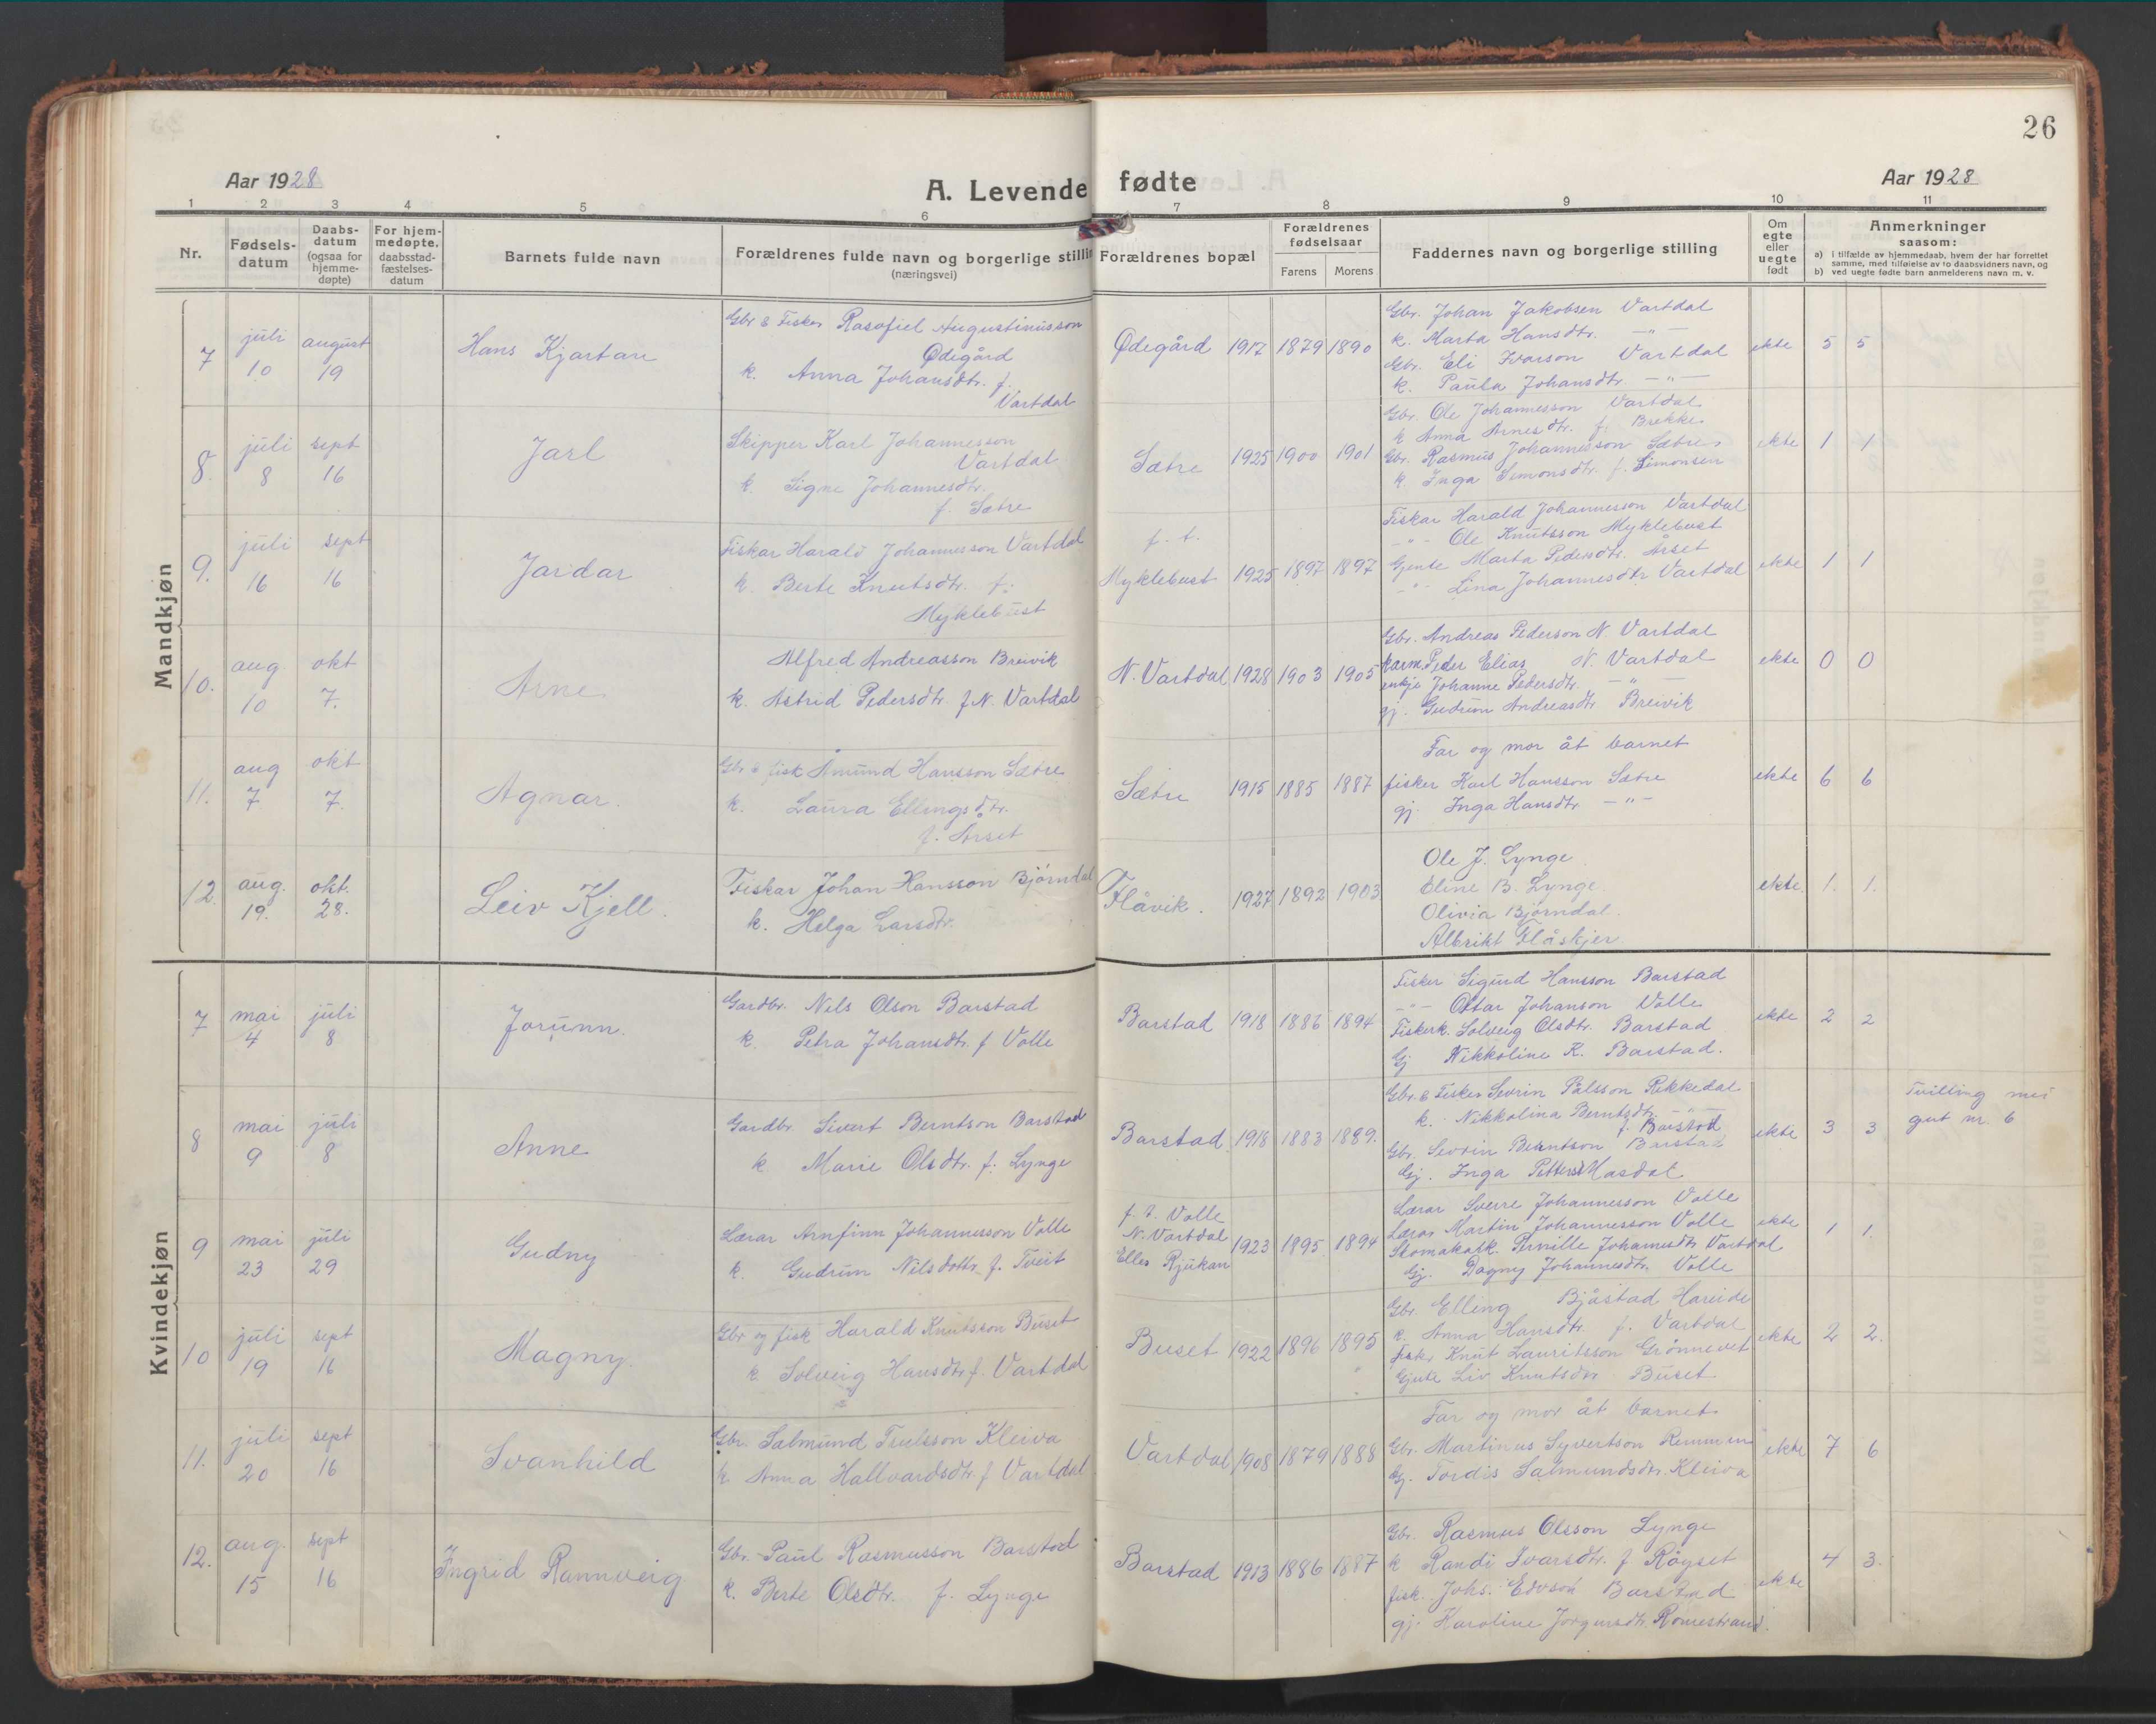 26
Aar 1928
A. Levende fødte
Aar 1928
1 2 3 4 5 6 7 8 9 10 11
Nr.
Fødsels-
datum
Daabs-
datum
(ogsaa for
hjemme-
døpte)
For hjem-
medøpte.
daabsstad-
fæstelses-
datum
Barnets fulde navn
Forældrenes fulde navn og borgerlige stillin
(næringsvei)
Forældrenes bopæl
Forældrenes
fødselsaar
Farens Morens
Faddernes navn og borgerlige stilling
Om
egte
eller
uegte
født
Anmerkninger
saasom:
a) i tilfælde av hjemmedaab, hvem der har forrettet
samme, med tilføielse av to daabsvidners navn, og
b) ved uegte fødte barn anmelderens navn m. v.
Mandkjøn
7
juli
10
august
19
Hans Kjartan
Gbr & Fisker Rasofiel Augustinusson
Ødegård
k. Anna Johansdtr. f.
Vartdal
Ødegård 1917 1879 1890
Gbr. Johan Jakobsen Vartdal
k. Marta Hansdtr. —"—
Gbr. Eli Ivarson Vartdal
k. Paula Johansdtr. —"—
ekte 5 5
8.
juli
8
sept
16
Jarl
Skipper Karl Johannesson
Vartdal
k. Signe Johannesdtr.
f. Sætre
Sætre 1925 1900 1901
Gbr. Ole Johannesson Vartdal
k Anna Arnesdtr. f. Brekke
Gbr. Rasmus Johannesson Sætre
k. Inga Simonsdtr. f. Simonsen
ekte 1 1
9.
juli
16
sept
16
Jardar
Fiskar Harald Johannesson Vartdal
k. Berte Knutsdtr. f.
Myklebust
f. t.
Myklebust 1925 1897 1897
Fiskar Harald Johannesson Vartdal
—"— Ole Knutsson Myklebust
Gjente Marta Pedersdtr. Årset
—"— Lina Johannesdtr Vartdal
ekte 1 1
10.
aug.
10
okt
7.
Arne
Alfred Andreasson Breivik
k. Astrid Pedersdtr f N. Vartdal
N. Vartdal 1928 1903 1905
Gbr. Andreas Pederson N. Vartdal
Karm. Peder Elias N. Vartdal
enkje Johanne Pedersdtr. —"—
gj. Gudrun Andreasdtr Breivik
ekte 0 0
11.
aug
7
okt
7.
Agnar.
Gbr & fisk Åmund Hansson Sætre
k. Laura Ellingsdtr.
f. Årset
Sætre 1915 1885 1887
Far og mor åt barnet
fisker Karl Hansson Sætre
gj. Inga Hansdtr —"—
ekte 6 6
12.
aug.
19.
okt.
28.
Leiv Kjell.
Fiskar Johan Hansson Bjørndal
k. Helga Larsdtr.
Flåvik. 1927 1892 1903
Ole J. Lynge
Eline B. Lynge.
Olivia Bjørndal.
Albrikt Flåskjer.
ekte. 1. 1.
Kvindekjøn
7
mai
4
juli
8
Jorunn.
Gardbr. Nils Olson Barstad
k. Petra Johansdtr. f Volle
Barstad 1918 1886 1894
Fisker Sigurd Hansson Barstad
—"— Ottar Johanson Volle
Fiskerk. Solveig Olsdtr. Barstad
Gj Nikkoline K. Barstad.
ekte 2 2
8
mai
9
juli
8
Anne
Gardbr. Sivert Berntson Barstad
k. Marie Olsdtr. f. Lynge
Barstad 1918 1883 1889.
Gbr. & Fisker Sevrin Pålsson Rekkedal
k. Nikkolina Berntsdtr. —"—
f. Barstad
Gbr. Sevrin Berntson Barstad
Gj. Inga Petters Masdal
ekte 3 3
Tvilling med
gut nr. 6
9
mai
23
juli
29
Gudny
Lærar Arnfinn Johannesson Volle
k. Gudrun Nilsdottr. f. Tveit
f. t. Volle
N. Vartdal
Elles Rjukan
1923 1895 1894
Lærar Sverre Johannesson Volle
Lærar Martin Johannesson Volle
Skomakark. Pernille Johannesdtr Vartdal
Gj. Dagny Johannesdtr. Volle
ekte 1 1.
10
juli
19
sept
16
Magny.
Gbr og fisk Harald Knutsson Buset
k. Solveig Hansdtr f. Vartdal
Buset 1922 1896 1895
Gbr. Elling Bjåstad, Hareide
k. Anna Hansdtr. f. Vartdal
Fisker Knut Lauritsson Grønnevet
Gjente Liv Knutsdtr. Buset
ekte 2 2.
11.
juli
20
sept
16
Svanhild
Gbr. Salmund Trulsson Kleiva
k. Anna Hallvardsdtr. f Vartdal
Vartdal 1908 1879 1888
Far og mor åt barnet
Gbr. Martinus Syvertson Remmen
Gj. Tordis Salmundsdtr. Kleiva
ekte 7 6
12.
aug.
15
sept
16
Ingrid Rannveig
Gbr. Paul Rasmusson Barstad
k. Berte Olsdtr. f. Lynge
Barstad 1913 1886 1887
Gbr. Rasmus Olsson Lynge
k Randi Ivarsdtr. f Røyset
fisk. Johs. Edvson Barstad
gj. Karoline Jørgensdtr. Romestrand.
ekte 4 3.